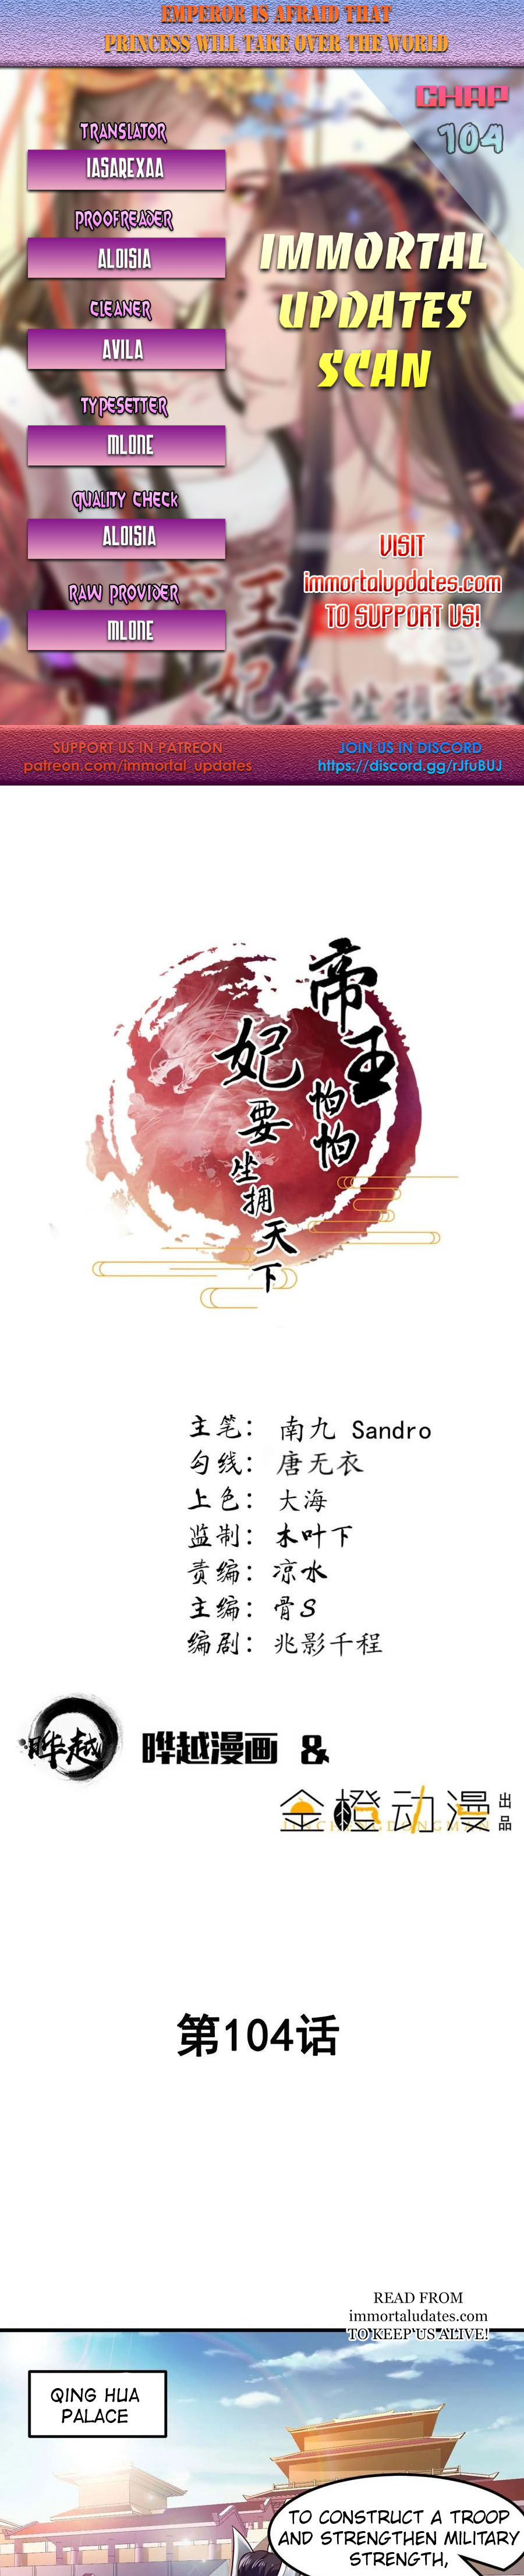 EMPEROR IS AFRAID THAT
PRINCESS WILL TAKE OVER THE WORLD
CHAP
104
TRANSLATOR
IASAREXAA
PROOFREADER
ALOISIA
CLEANER
AVILA
TYPESETTER
MLONE
QUALITY CHECK
ALOISIA
RAW PROVIDER
MLONE
IMMORTAL
UPDATES
SCAN
VISIT
immortalupdates.com
TO SUPPORT US!
SUPPORT US IN PATREON
patreon.com/immortal_updates
JOIN US IN DISCORD
https://discord.gg/rJfuBUJ
帝王怕怕
妃要坐拥天下
主笔: 南九 Sandro
勾线: 唐无衣
上色: 大海
监制: 木叶下
责编: 凉水
主编: 骨S
编剧: 兆影千程
晔越
晔越漫画 &
金橙动漫 出品
第104话
READ FROM
immortaludates.com
TO KEEP US ALIVE!
QING HUA
PALACE
TO CONSTRUCT A TROOP
AND STRENGTHEN MILITARY
STRENGTH,